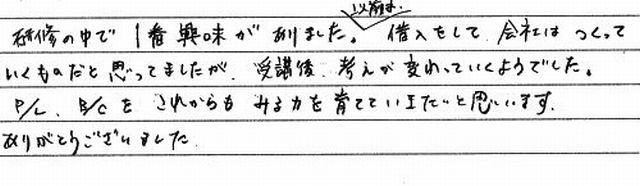 研修の中で1番興味がありました。以前は、借入をして、会社はつくって
いくものだと思ってましたが、受講後、考えが変わっていくようでした。
P/L、B/Cをこれからもみる力を育てていきたいと思います。
ありがとうございました。